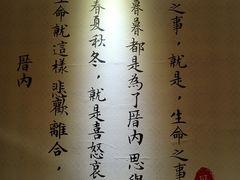 之事，就是，生命之事
暮暮都是為了厝內 思
春夏秋冬，就是喜怒哀
生命就這樣悲歡離合，
厝內